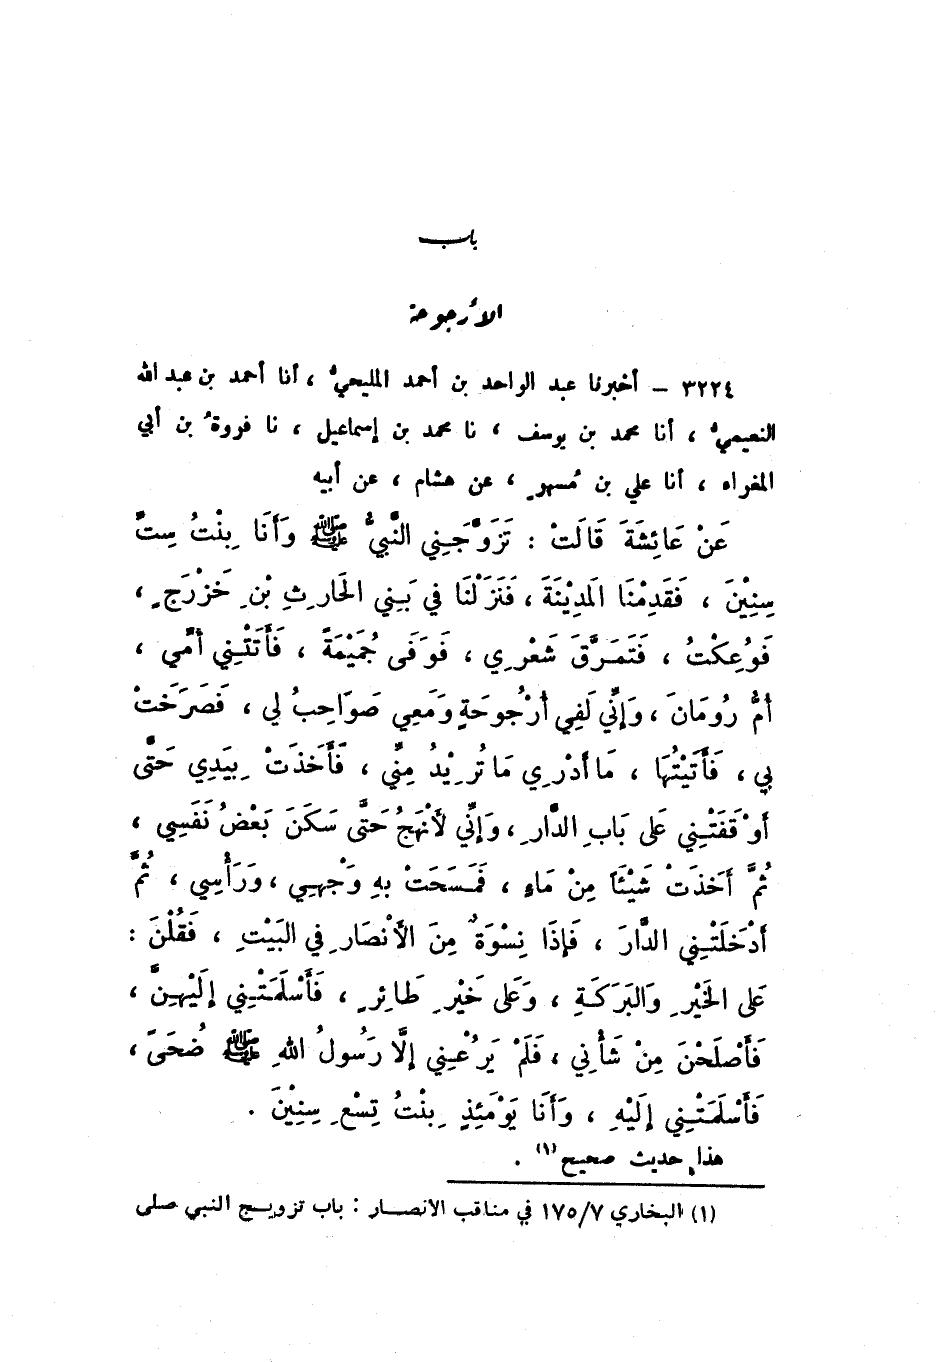 باب
الأرجوحة
٣٢٢٤ – أخبرنا عبد الواحد بن أحمد المليحيُّ ، أنا أحمد بن عبد الله
النعيميُّ ، أنا محمد بن يوسف ، نا محمد بن إسماعيل ، نا فروةُ بن أبي
المغراء ، أنا علي بن مُسهرٍ ، عن هشام ، عن أبيه
عَنْ عَائِشَةَ قَالَتْ : تَزَوَّجَنِي النَّبيُّ ﷺ وَأَنَا بِنْتُ سِتِّ
سِنِيْنَ ، فَقَدِمْنَا المَدِيْنَةَ ، فَنَزَلْنَا في بَنِي الحَارِثِ بْنِ خَزْرَجٍ ،
فَوُعِكْتُ ، فَتَمَرَّقَ شَعْرِي ، فَوَفَى جُمَيْمَةً ، فَأَتَتْنِي أُمِّي ،
أُمُّ رُومَانَ ، وَإنِّي لَفِي أُرْجُوحَةٍ وَمَعِي صَوَاحِبُ لي ، فَصَرَخَتْ
بي ، فَأَتَيْتُهَا ، مَا أَدْرِي مَا تُرِيْدُ مِنِّي ، فَأَخَذَتْ بِيَدِي حَتَّى
أوْقَفَتْنِي عَلى بَابِ الدَّارِ ، وَإنِّي لأَنْهَجُ حَتَّى سَكَنَ بَعْضُ نَفَسِي ،
ثُمَّ أَخَذَتْ شَيْئَاً مِنْ مَاءٍ ، فَمَسَحَتْ بِهِ وَجْهِي ، وَرَأْسِي ، ثُمَّ
أَدْخَلَتْنِي الدَّارَ ، فَإذَا نِسْوَةٌ مِنَ الأَنْصَارِ فِي البَيْتِ ، فَقُلْنَ :
عَلى الخَيْرِ وَالبَرَكَةِ ، وَعَلى خَيْرِ طَائِرٍ ، فَأَسْلَمَتْنِي إلَيْهِنَّ ،
فَأَصْلَحْنَ مِنْ شَأْنِي ، فَلَمْ يَرُعْنِي إلَّا رَسُولُ اللهِ ﷺ ضُحَىً ،
فَأَسْلَمَتْنِي إلَيْهِ ، وَأَنَا يَوْمَئِذٍ بِنْتُ تِسْعِ سِنِيْنَ .
هذا حديث صحيح (١) .
(١) البخاري ١٧٥/٧ في مناقب الانصار : باب تزويج النبي صلى